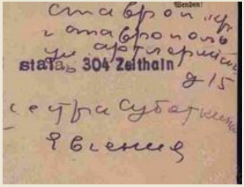 Wenden!
ставроп. кр
г ставрополь
ул артлерийс
stalag 304 Zeithain
д 15
сестра Суботкина
Явгения